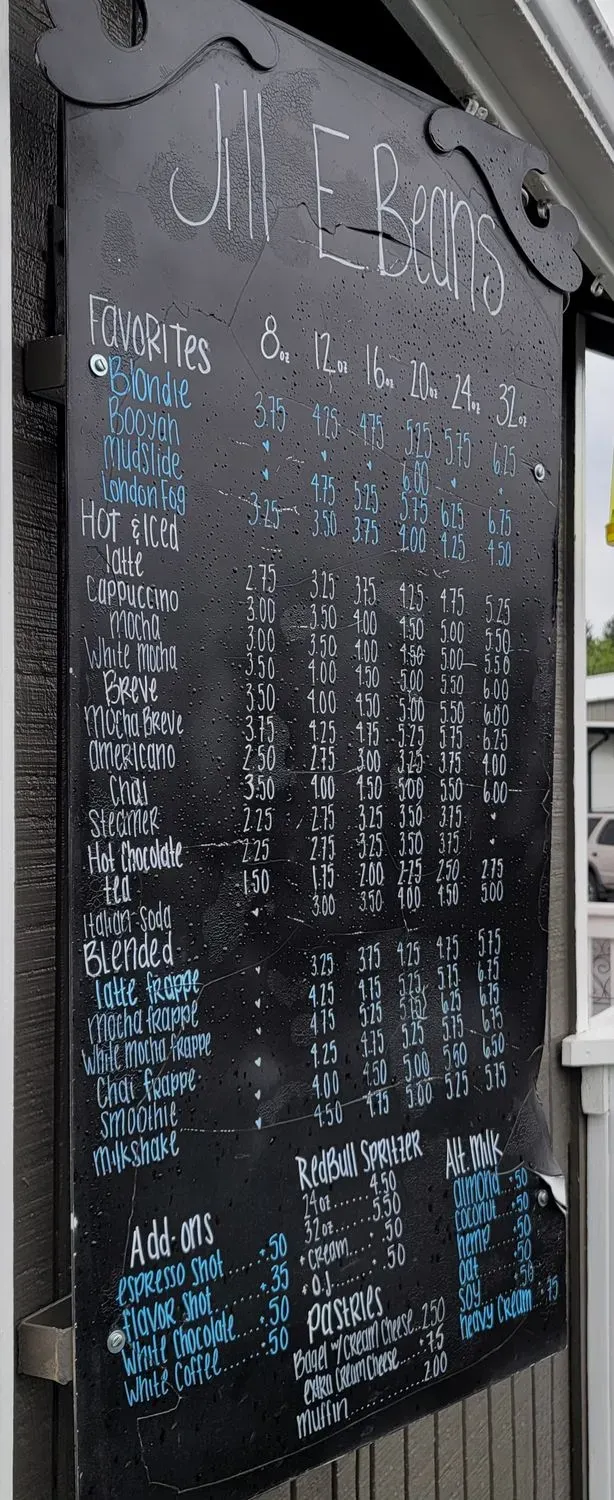 Jill E Beans
Favorites 8oz 12oz 16oz 20oz 24oz 32oz
Blondie 3.75 4.25 4.75 5.25 5.75 6.25
Booyah ♥ ♥ ♥ 6.00 ♥ ♥
Mudslide ♥ 4.75 5.25 5.75 6.25 6.75
London Fog 3.25 3.50 3.75 4.00 4.25 4.50
Hot & Iced
latte 2.75 3.25 3.75 4.25 4.75 5.25
Cappuccino 3.00 3.50 4.00 4.50 5.00 5.50
Mocha 3.00 3.50 4.00 4.50 5.00 5.50
White Mocha 3.50 4.00 4.50 5.00 5.50 6.00
Breve 3.50 4.00 4.50 5.00 5.50 6.00
Mocha Breve 3.75 4.25 4.75 5.25 5.75 6.25
americano 2.50 2.75 3.00 3.25 3.75 4.00
Chai 3.50 4.00 4.50 5.00 5.50 6.00
Steamer 2.25 2.75 3.25 3.50 3.75 ♥
Hot Chocolate 2.25 2.75 3.25 3.50 3.75 ♥
tea 1.50 1.75 2.00 2.25 2.50 2.75
Italian Soda ♥ 3.00 3.50 4.00 4.50 5.00
Blended
latte frappe ♥ 3.25 3.75 4.25 4.75 5.75
Mocha frappe ♥ 4.25 4.75 5.25 5.75 6.75
White Mocha frappe ♥ 4.75 5.25 5.75 6.25 6.75
Chai frappe ♥ 4.25 4.75 5.25 5.75 6.75
Smoothie ♥ 4.00 4.50 5.00 5.50 6.50
Milkshake ♥ 4.50 4.75 5.00 5.25 5.75
Add-ons
espresso shot.......+.50
flavor shot.......+.35
White Chocolate.....+.50
White Coffee.......+.50
RedBull Spritzer
24oz......4.50
32oz......5.50
+ cream......50
+ O.J.......50
Pastries
Bagel w/ Cream Cheese...2.50
extra Cream Cheese....75
muffin...........2.00
Alt. Milk
almond...50
coconut..50
hemp....50
oat.....50
soy.....50
heavy cream..75